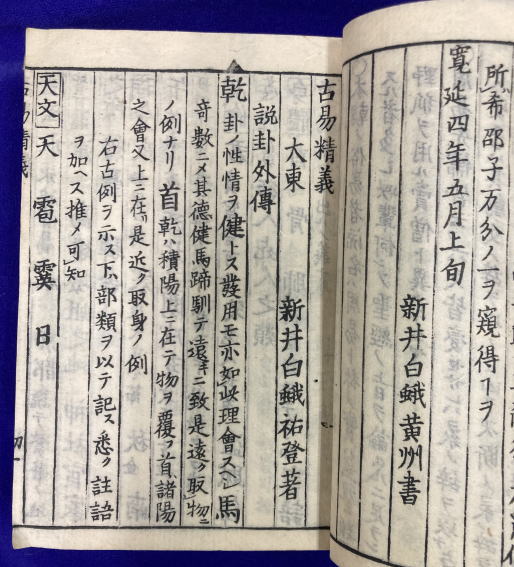 所希邵子万分ノ一ヲ窺得ヿヲ
寛延四年五月上旬
新井白蛾黄州書
古易精義
大東 新井白蛾祐登著
説卦外傳
乾 卦ノ性情ヲ健トス發用モ亦如此理會スヘシ馬
奇數ニメ其德健馬蹄馴テ遠キニ致是遠ク取物ニ
ノ例ナリ 首 乾ハ積陽上ニ在テ物ヲ覆フ首諸陽
之會又上ニ在是近ク取身ノ例
右古例ヲ示ス下ハ部類ヲ以テ記ス悉ク註語
ヲ加ヘス推メ可知
天文 天 雹 霙 日
古易精義